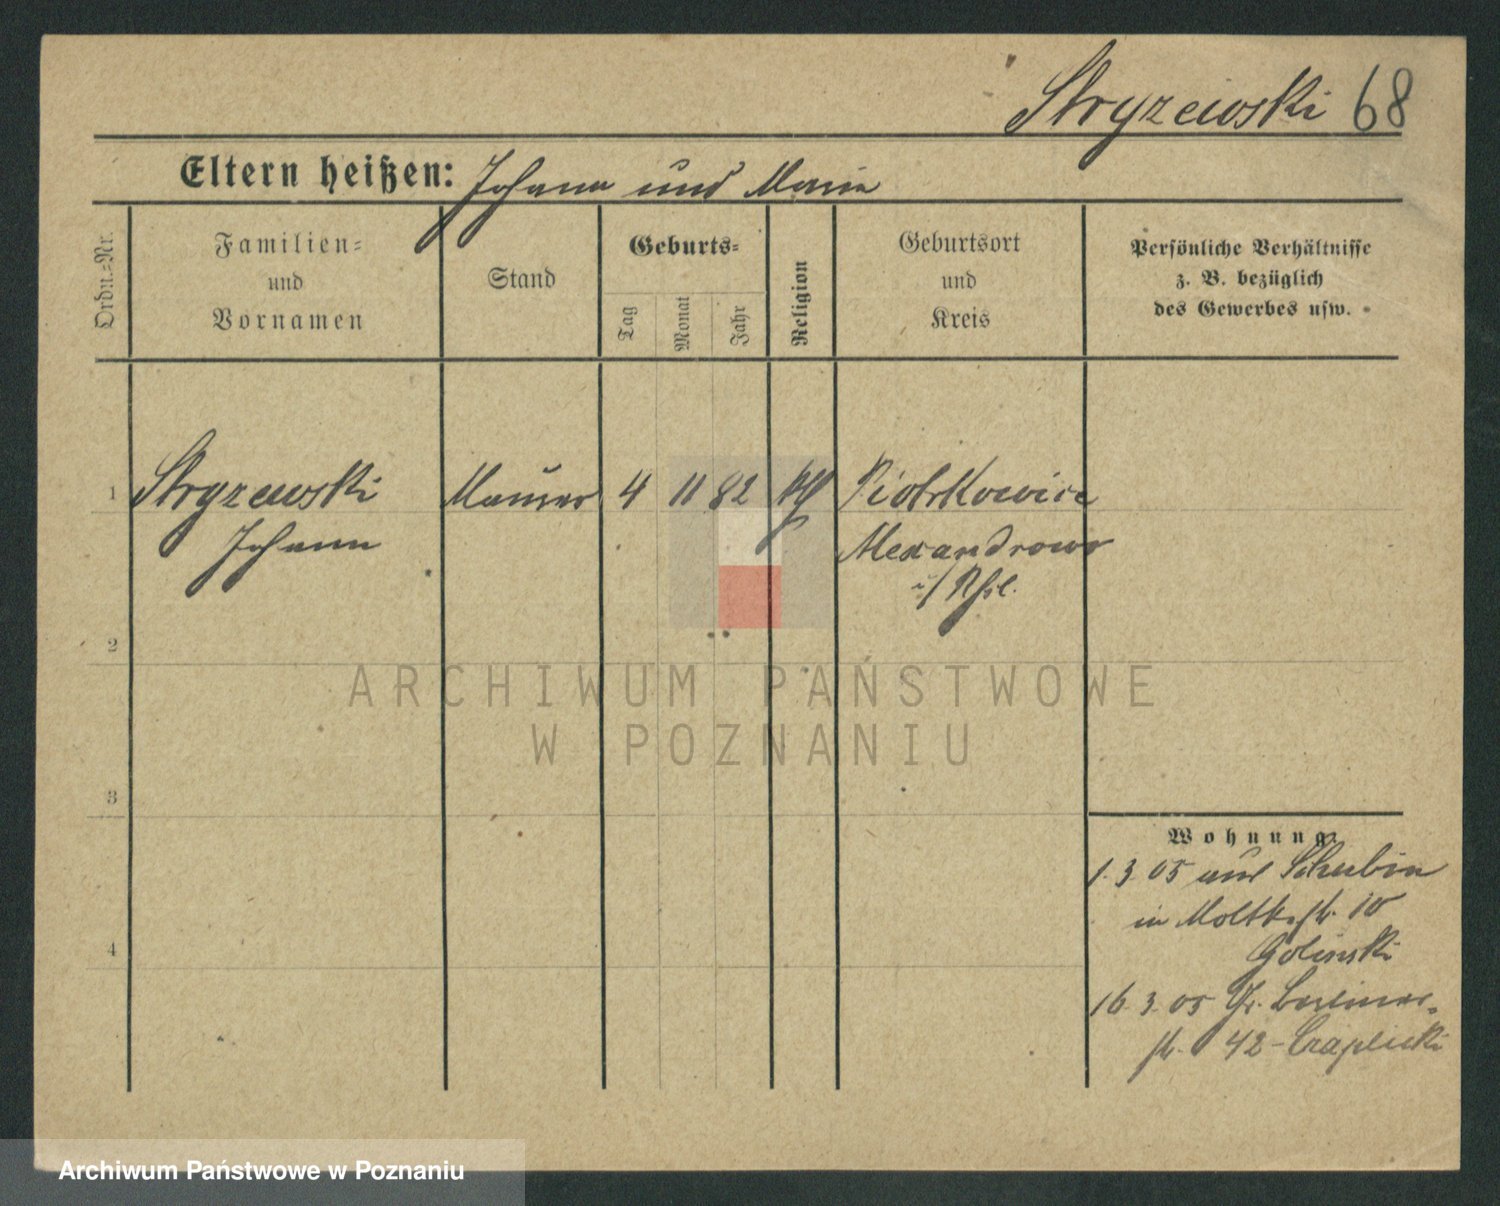 Stryzewski 68
Eltern heißen: Johann und Maria
Ordn.=Nr.
Familien=
und
Vornamen
Stand
Geburts=
Tag
Monat
Jahr
Religion
Geburtsort
und
Kreis
Persönliche Verhältnisse
z. B. bezüglich
des Gewerbes usw.
1 Stryzewski Maurer 4 11 82 Piotrkowice
Johann Alexandrowo
2
3
4
Wohnung
1. 3 05 aus Schubin
in Moltkestr. 10
Golinski
16. 3. 05 Gr. Berliner-
str. 42 - Czaplicki
ARCHIWUM PAŃSTWOWE
W POZNANIU
Archiwum Państwowe w Poznaniu